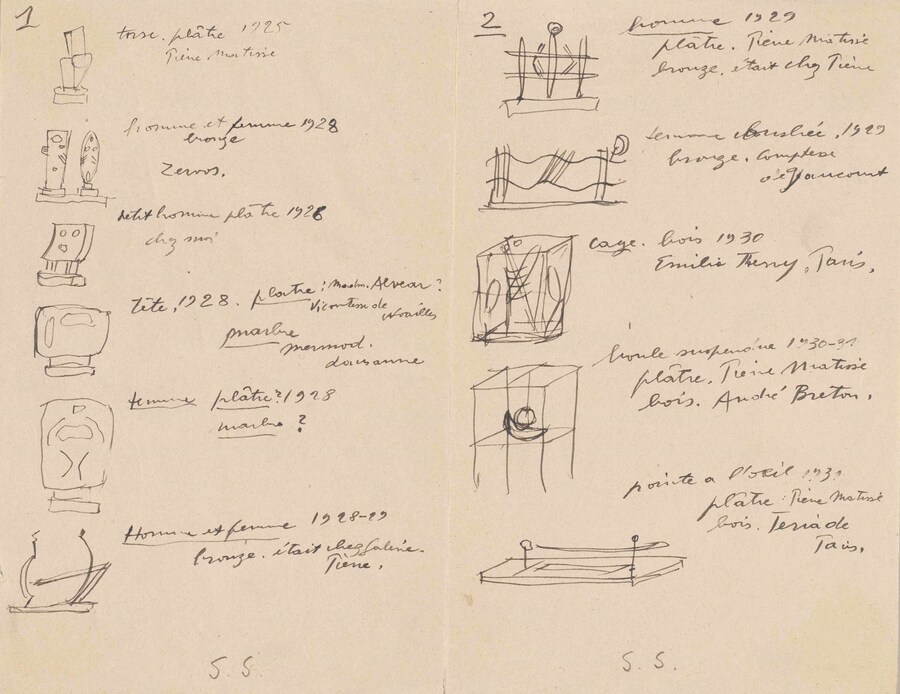 1
torse. plâtre 1925
Pierre Matisse
homme et femme 1928
bronze
Zervos.
petit homme plâtre 1926
chez moi
tête, 1928. plâtre: Madm. Alvear?
Vicontesse de Noailles
marbre
mermod.
Lausanne
femme plâtre? 1928
marbre ?
Homme et femme 1928-29
bronze. était chez Galerie
Pierre.
S. S.
2
homme 1929
plâtre. Pierre Matisse
bronze. était chez Pierre
femme couchée, 1929
bronze. Comptesse
de Gaucourt
cage. bois 1930
Emilio Therry, Paris.
boule suspendue 1930-31
plâtre. Pierre Matisse
bois. André Breton.
pointe a l'oeil 1931
plâtre. Pierre Matisse
bois. Teriade
Paris.
S. S.